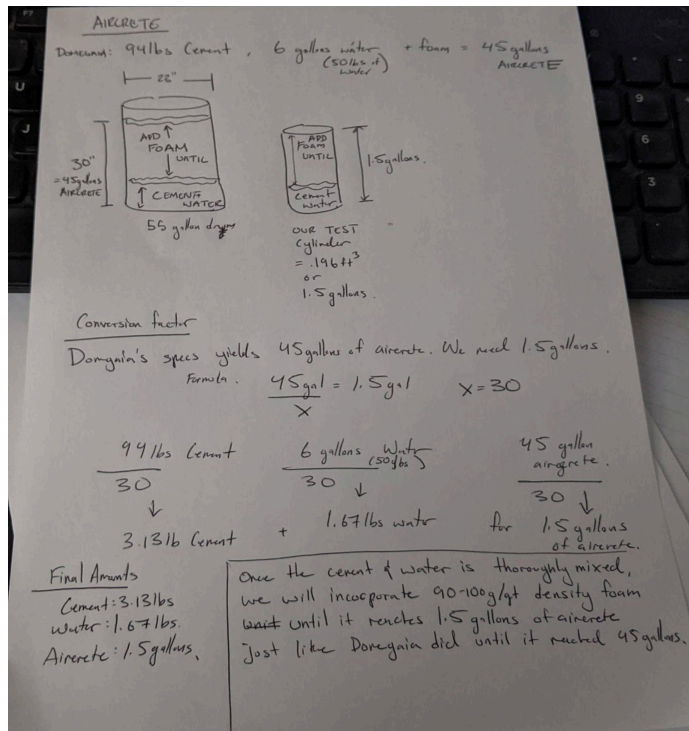 AIRCRETE
DOMEGAIA: 94lbs Cement, 6 gallons water + foam = 45 gallons
(50lbs of water) AIRCRETE
22"
ADD
FOAM
UNTIL
30"
=45gallons
AIRCRETE
CEMENT+
WATER
55 gallon drum
ADD
FOAM
UNTIL
Cement
Water
1.5gallons.
OUR TEST
Cylinder
= .196ft³
or
1.5gallons.
Conversion factor
Domgaia's specs yields 45gallons of aircrete. We need 1.5gallons.
Formula. 45gal / X = 1.5gal X=30
94lbs Cement / 30
6 gallons Water (50lbs) / 30
45 gallon aircrete. / 30
3.13lb Cement + 1.67lbs water for 1.5gallons
of aircrete.
Final Amounts
Cement: 3.13lbs
Water: 1.67lbs.
Aircrete: 1.5gallons.
Once the cement & water is thoroughly mixed,
we will incorporate 90-100g/qt density foam
until it reaches 1.5gallons of aircrete
just like Domegaia did until it reached 45gallons.
U
J
9
6
3